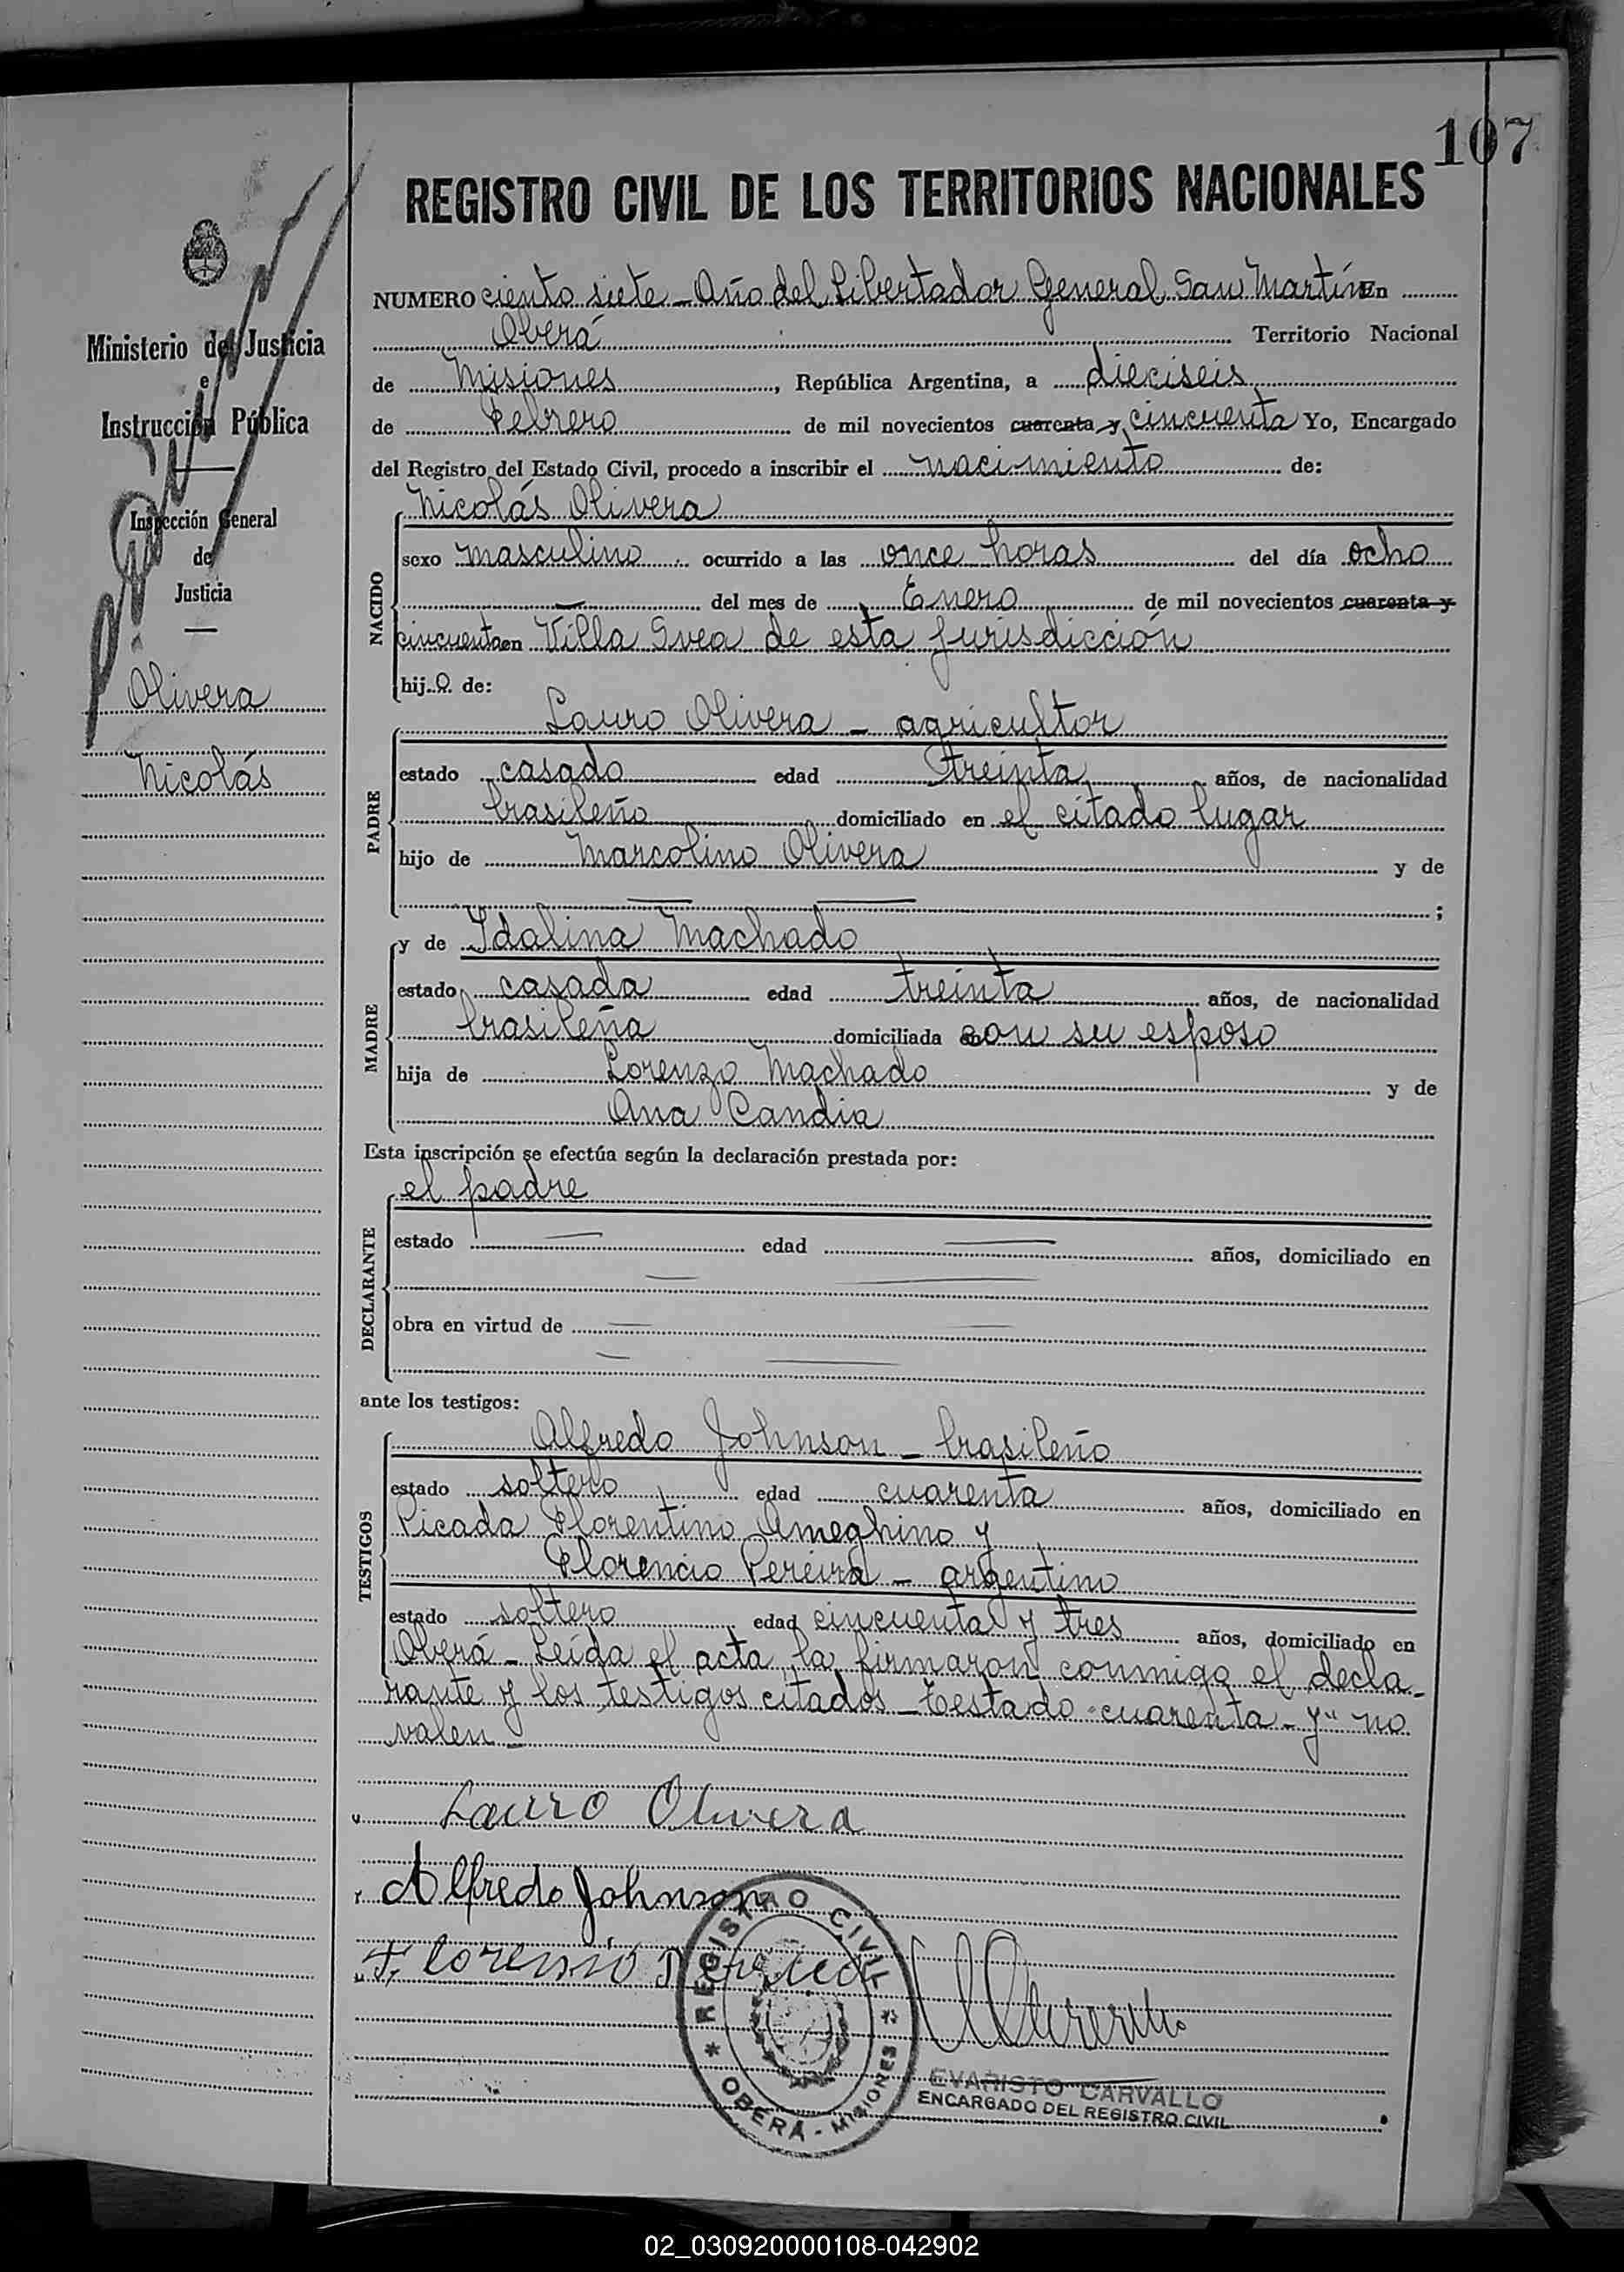 107
REGISTRO CIVIL DE LOS TERRITORIOS NACIONALES
NUMERO ciento siete - Año del Libertador General San Martín En
Oberá Territorio Nacional
de Misiones, República Argentina, a dieciseis
de Febrero de mil novecientos cuarenta y cincuenta Yo, Encargado
del Registro del Estado Civil, procedo a inscribir el nacimiento de:
Ministerio de Justicia
e
Instrucción Pública
Inspección General
de
Justicia
Olivera
Nicolás
NACIDO
Nicolás Olivera
sexo masculino ocurrido a las once horas del día ocho
del mes de Enero de mil novecientos cuarenta y
cincuenta en Villa Svea de esta jurisdicción
hij o de:
PADRE
Lauro Olivera - agricultor
estado casado edad treinta años, de nacionalidad
brasileño domiciliado en el citado lugar
hijo de Marcolino Olivera y de
;
MADRE
y de Idalina Machado
estado casada edad treinta años, de nacionalidad
brasileña domiciliada con su esposo
hija de Lorenzo Machado y de
Ana Candia
Esta inscripción se efectúa según la declaración prestada por:
DECLARANTE
el padre
estado edad años, domiciliado en
obra en virtud de
ante los testigos:
TESTIGOS
Alfredo Johnson - brasileño
estado soltero edad cuarenta años, domiciliado en
Picada Florentino Ameghino y
Florencio Pereira - argentino
estado soltero edad cincuenta y tres años, domiciliado en
Oberá - Leída el acta, la firmaron conmigo el decla-
rante y los testigos citados - Testado "cuarenta - y" no
valen -
Lauro Olivera
Alfredo Johnson
Florensio
REGISTRO CIVIL
OBERÁ - MISIONES
EVARISTO CARVALLO
ENCARGADO DEL REGISTRO CIVIL
02_030920000108-042902